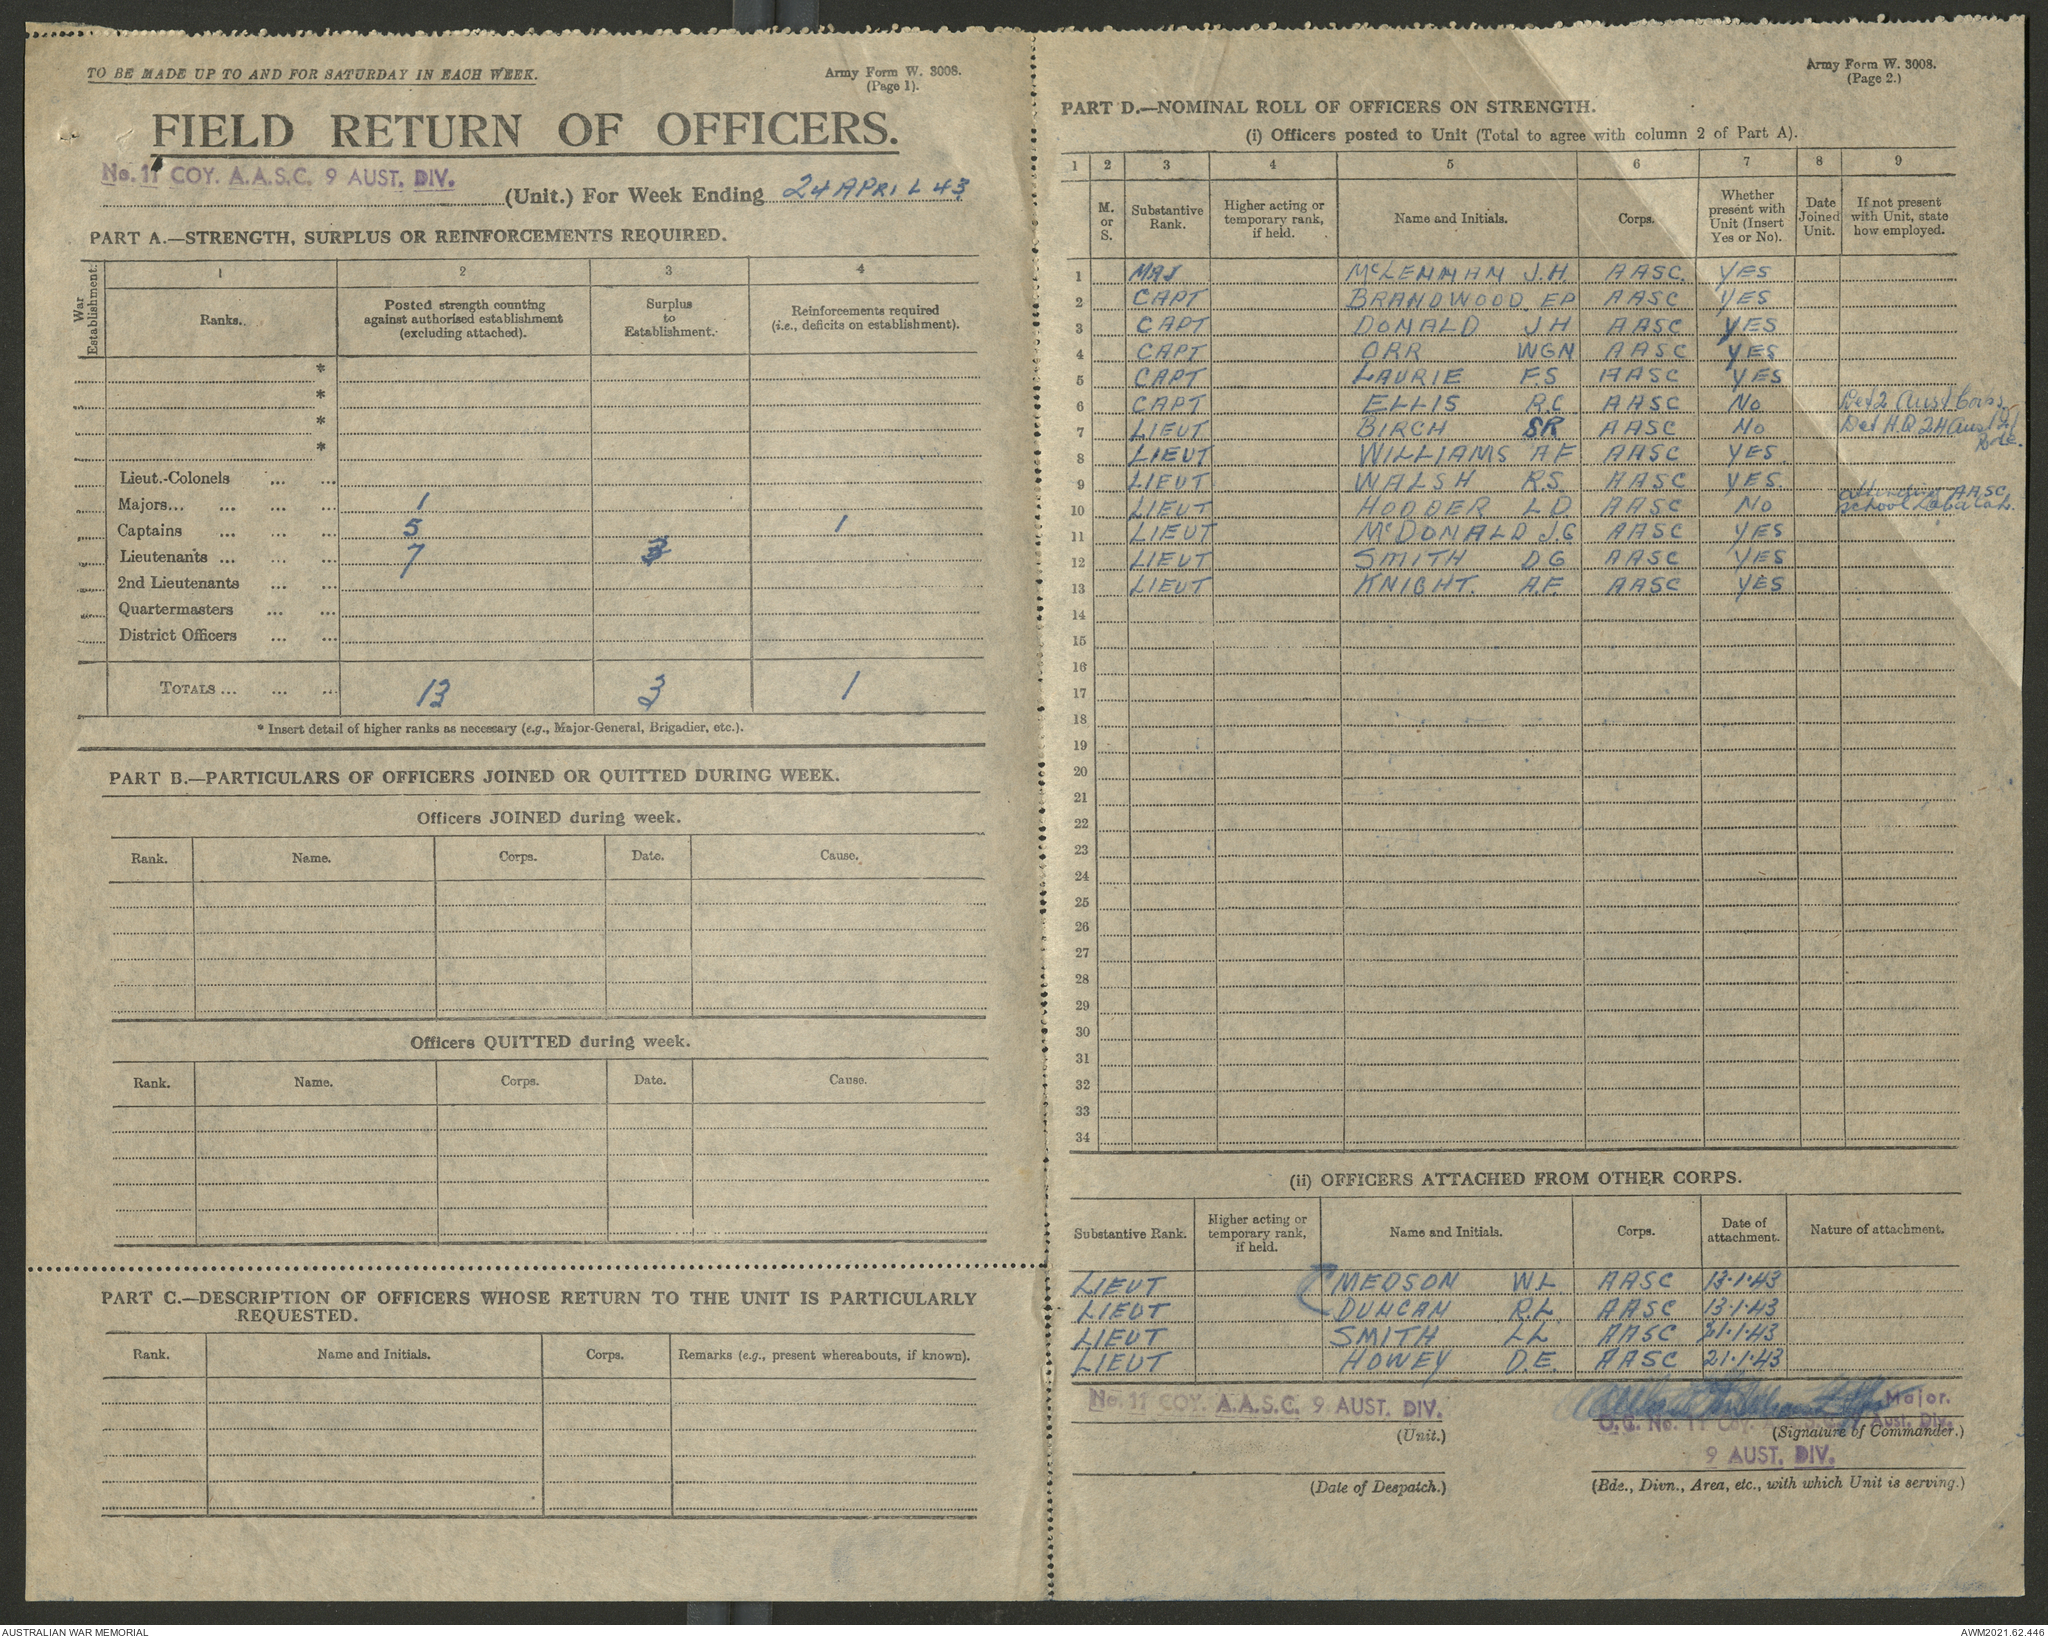 TO BE MADE UP TO AND FOR SATURDAY IN EACH WEEK.
Army Form W. 3008.
(Page 1).
FIELD RETURN OF OFFICERS.
No. 11 COY. A.A.S.C. 9 AUST. DIV.
(Unit.) For Week Ending 24 APRIL 43
PART A.—STRENGTH, SURPLUS OR REINFORCEMENTS REQUIRED.
War Establishment.
1 2 3 4
Ranks.
Posted strength counting against authorised establishment (excluding attached).
Surplus to Establishment.
Reinforcements required (i.e., deficits on establishment).
*
*
*
*
Lieut.-Colonels ... ...
Majors... ... ... ... 1
Captains ... ... ... 5 1
Lieutenants ... ... ... 7 3
2nd Lieutenants ... ...
Quartermasters ... ...
District Officers ... ...
TOTALS ... ... ... 13 3 1
* Insert detail of higher ranks as necessary (e.g., Major-General, Brigadier, etc.).
PART B.—PARTICULARS OF OFFICERS JOINED OR QUITTED DURING WEEK.
Officers JOINED during week.
Rank. Name. Corps. Date. Cause.
Officers QUITTED during week.
Rank. Name. Corps. Date. Cause.
PART C.—DESCRIPTION OF OFFICERS WHOSE RETURN TO THE UNIT IS PARTICULARLY
REQUESTED.
Rank. Name and Initials. Corps. Remarks (e.g., present whereabouts, if known).
Army Form W. 3008.
(Page 2.)
PART D.—NOMINAL ROLL OF OFFICERS ON STRENGTH.
(i) Officers posted to Unit (Total to agree with column 2 of Part A).
1 2 3 4 5 6 7 8 9
M. or S.
Substantive Rank.
Higher acting or temporary rank, if held.
Name and Initials.
Corps.
Whether present with Unit (Insert Yes or No).
Date Joined Unit.
If not present with Unit, state how employed.
1 MAJ McLENNAN J.H. AASC. YES
2 CAPT BRANDWOOD EP AASC YES
3 CAPT DONALD JH AASC YES
4 CAPT ORR WGN AASC YES
5 CAPT LAURIE F.S AASC YES
6 CAPT ELLIS R.C AASC No Det 2 Aust Corps
7 LIEUT BIRCH SR AASC No Det H.Q 24 Aust Inf Bde.
8 LIEUT WILLIAMS AF AASC YES
9 LIEUT WALSH R.S. AASC YES
10 LIEUT HODDER LD AASC No attending AASC school
11 LIEUT McDONALD J.G AASC YES
12 LIEUT SMITH DG AASC YES
13 LIEUT KNIGHT. A.F. AASC YES
14
15
16
17
18
19
20
21
22
23
24
25
26
27
28
29
30
31
32
33
34
(ii) OFFICERS ATTACHED FROM OTHER CORPS.
Substantive Rank.
Higher acting or temporary rank, if held.
Name and Initials.
Corps.
Date of attachment.
Nature of attachment.
LIEUT MEDSON W.L AASC 13.1.43
LIEUT DUNCAN R.L. AASC 13.1.43
LIEUT SMITH LL AASC 21.1.43
LIEUT HOWEY D.E. AASC 21.1.43
No. 11 COY. A.A.S.C. 9 AUST. DIV.
(Unit.)
Major.
O.C. No. 11 Coy. A.A.S.C. 9 Aust. Div.
(Signature of Commander.)
9 AUST. DIV.
(Date of Despatch.)
(Bde., Divn., Area, etc., with which Unit is serving.)
AUSTRALIAN WAR MEMORIAL
AWM2021.62.446